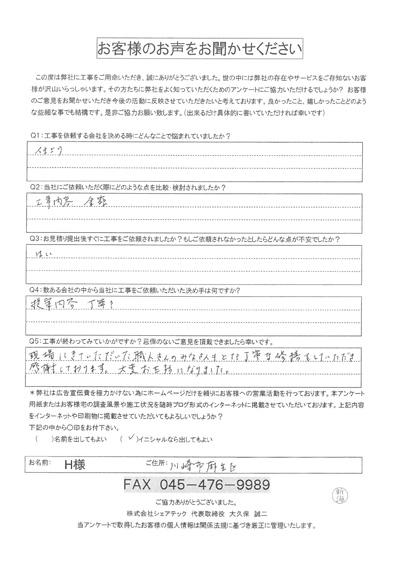 お客様のお声をお聞かせください
この度は弊社に工事をご用命いただき、誠にありがとうございました。世の中には弊社の存在やサービスをご存知ないお客
様が沢山いらっしゃいます。その方たちに弊社をよく知っていただくためのアンケートにご協力いただけるでしょうか? お客様
のご意見をお聞かせいただき今後の活動に反映させていただきたいと考えております。良かったこと、嬉しかったことどのよう
な些細な事でも結構です。是非ご協力お願い致します。(出来るだけ具体的に書いていただければ幸いです)
Q1:工事を依頼する会社を決める時にどんなことで悩まれていましたか?
Q2:当社にご依頼いただく際にどのような点を比較・検討されましたか?
工事内容 金額
Q3:お見積り提出後すぐに工事をご依頼されましたか?もしご依頼されなかったとしたらどんな点が不安でしたか?
はい
Q4:数ある会社の中から当社に工事をご依頼いただいた決め手は何ですか?
提案内容 丁寧さ
Q5:工事が終わってみていかがですか?忌憚のないご意見を頂戴できましたら幸いです。
現場にきていただいた職人さんのみなさんもとても丁寧な修繕をしていただき
感謝しております。大変お世話になりました。
*弊社は広告宣伝費を極力かけない為にホームページだけを頼りにお客様への営業活動を行っております。本アンケート
用紙またはお客様宅の調査風景や施工状況を随時ブログ形式のインターネットに掲載させていただいております。上記内容
をインターネットや印刷物に掲載させていただいてもよろしいでしょうか?
下記の中から○印をお付下さい。
( )名前を出してもよい (✓)イニシャルなら出してもよい
お名前: H様 ご住所: 川崎市麻生区
FAX 045-476-9989
ご協力ありがとうございました。
株式会社シェアテック 代表取締役 大久保 誠二
当アンケートで取得したお客様の個人情報は関係法規に基づき厳正に管理いたします。